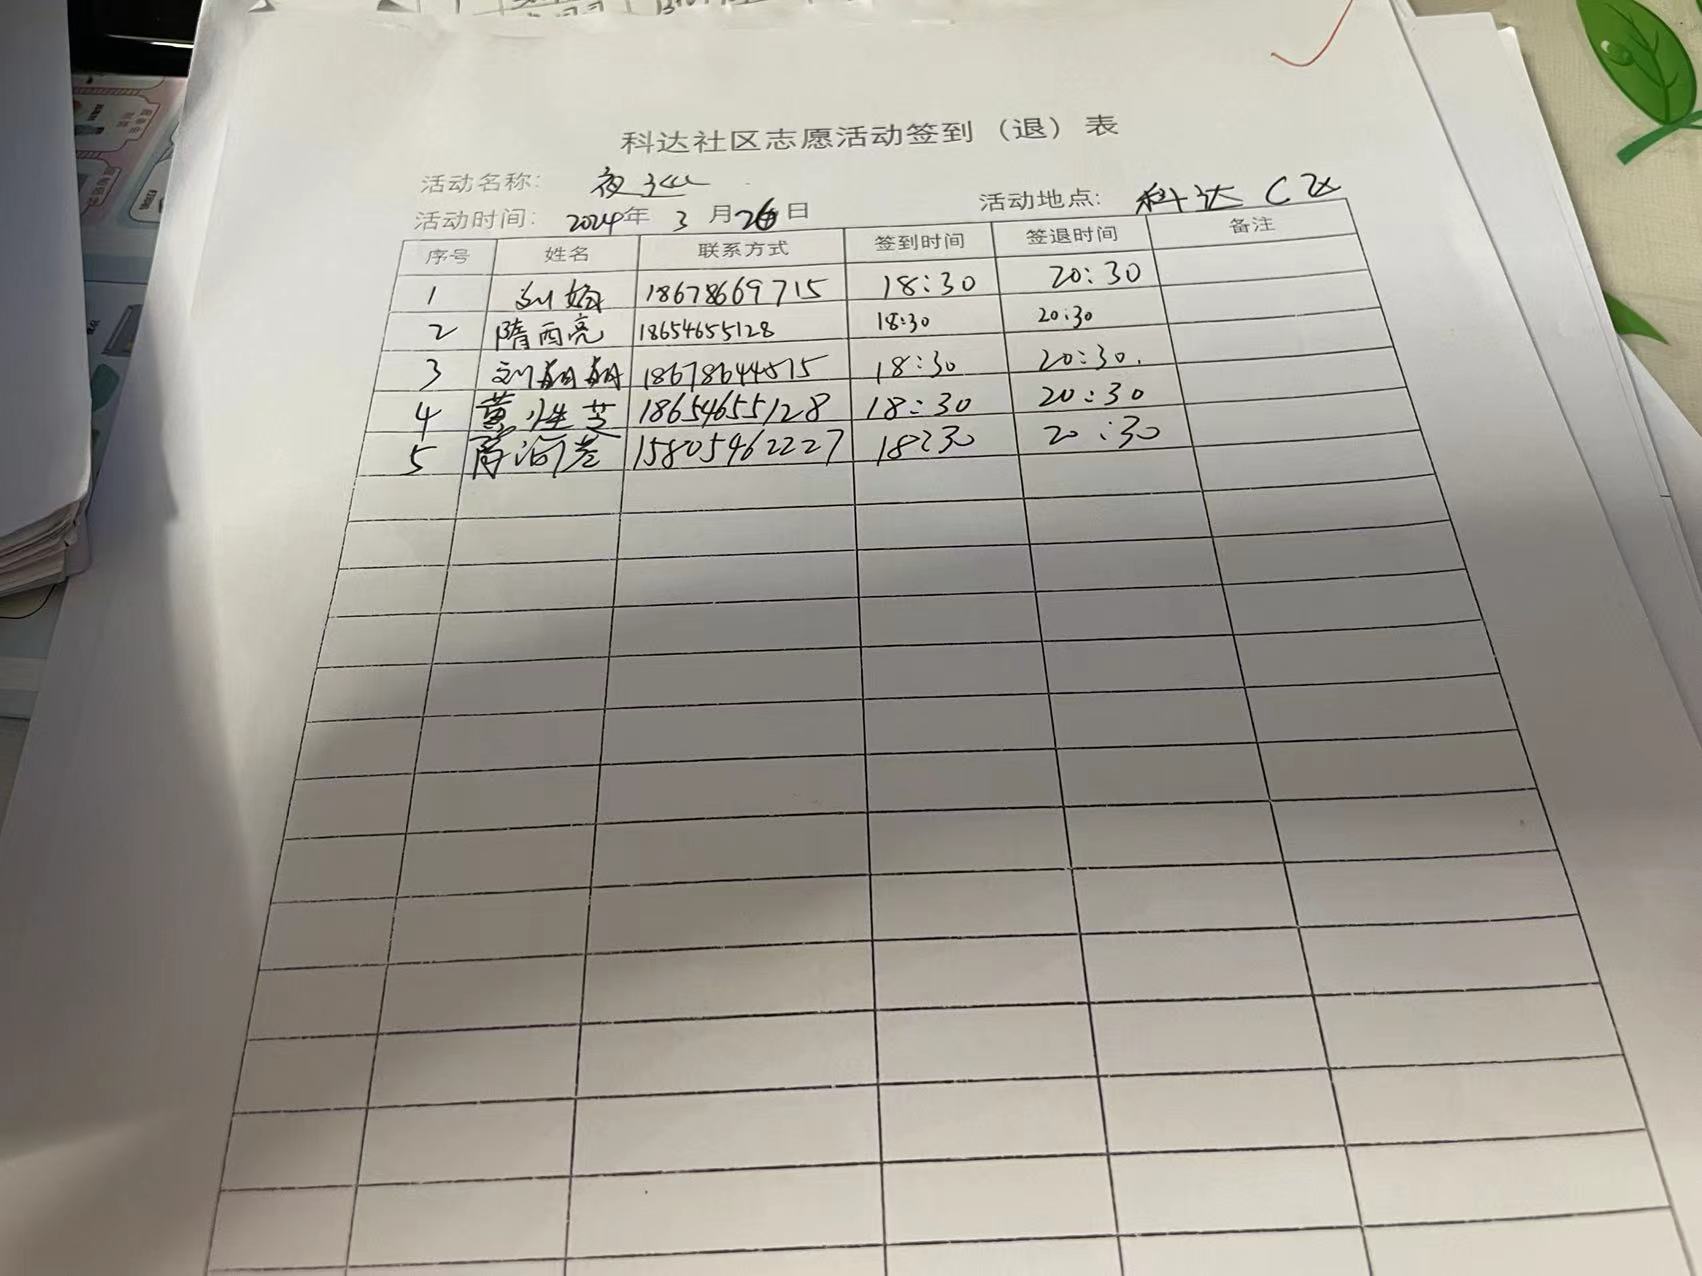 科达社区志愿活动签到（退）表
活动名称：夜巡
活动地点：科达C区
活动时间：2024年3月26日
序号 姓名 联系方式 签到时间 签退时间 备注
1 刘 18678669715 18:30 20:30
2 隋西亮 18654655128 18:30 20:30
3 刘娟娟 18678644575 18:30 20:30.
4 黄 芝 18654655128 18:30 20:30
5 15805462227 18:30 20:30